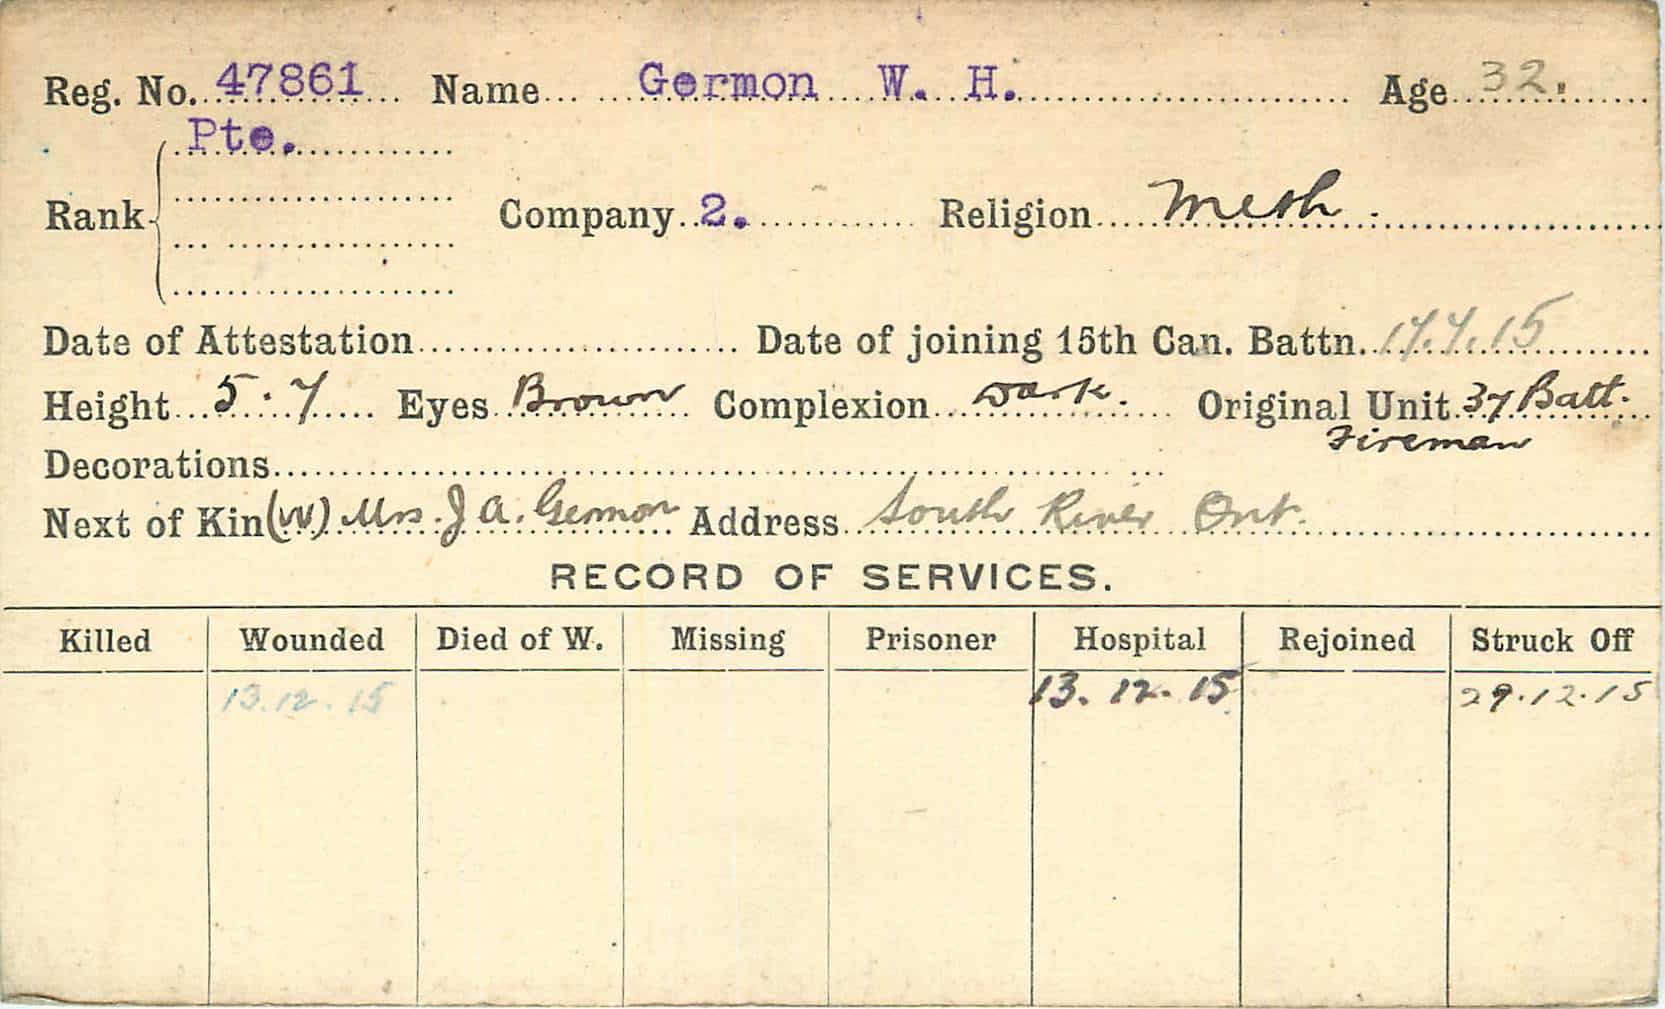 Reg. No. 47861 Name Germon W. H. Age 32.
Pte.
Rank Company 2. Religion Meth.
Date of Attestation Date of joining 15th Can. Battn. 17.7.15
Height 5.7 Eyes Brown Complexion Dark. Original Unit 37 Batt.
Fireman
Decorations
Next of Kin (W) Mrs. J A. Germon Address South River Ont.
RECORD OF SERVICES.
Killed Wounded Died of W. Missing Prisoner Hospital Rejoined Struck Off
13.12.15 13.12.15 29.12.15